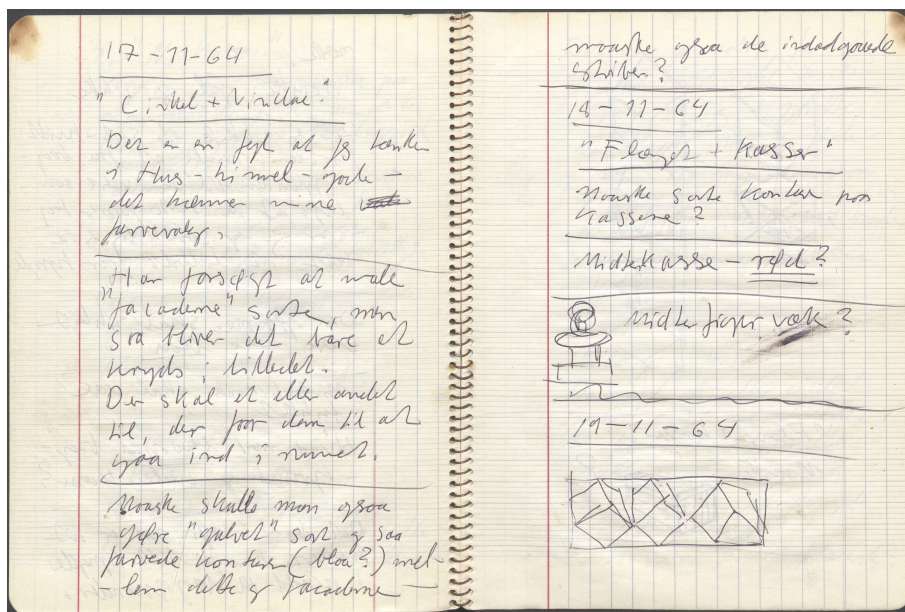 17-11-64
"Cirkel + Vindue."
Det er en fejl at jeg tænker
i Hus - himmel - gade -
det hæmmer mine
farvevalg.
Har forsøgt at male
"facaderne" sorte, men
saa bliver det bare et
kryds i billedet.
Der skal et eller andet
til, der faar dem til at
gaa ind i rummet.
Maaske skulle man ogsaa
gøre "gulvet" sort og saa
farvede konturer (blaa?) mel-
lem dette og facaderne -
maaske ogsaa de indadgaaende
striber?
18-11-64
"Fløjet + Kasser"
Maaske sorte konturer paa
kasserne?
Midterkasse - rød?
Midterfigur væk?
19-11-64